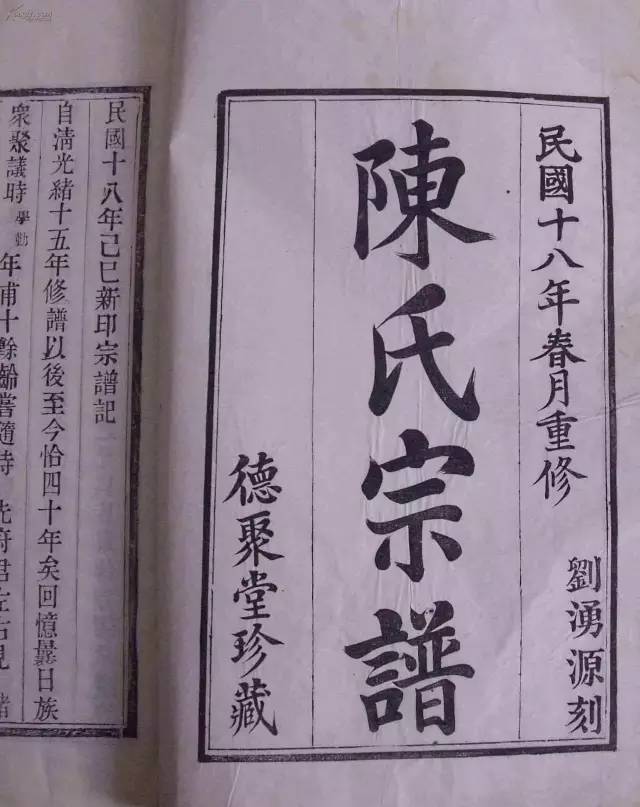 民國十八年春月重修
劉湧源刻
陳氏宗譜
德聚堂珍藏
民國十八年己巳新印宗譜記
自清光緒十五年修譜以後至今恰四十年矣回憶曩日族
衆聚議時學勤年甫十餘齡嘗隨侍 先府君左右見 諸